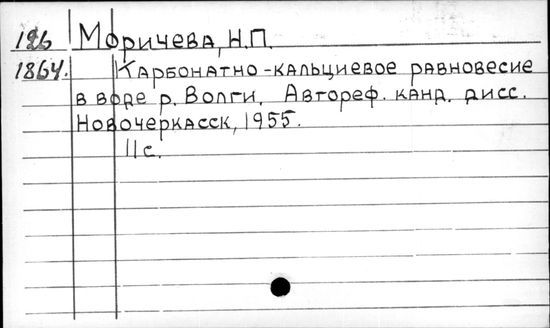 126 Моричева, Н.П.
1864. Карбонатно-кальциевое равновесие
в воде р. Волги. Автореф. канд. дисс.
Новочеркасск, 1955.
11с.